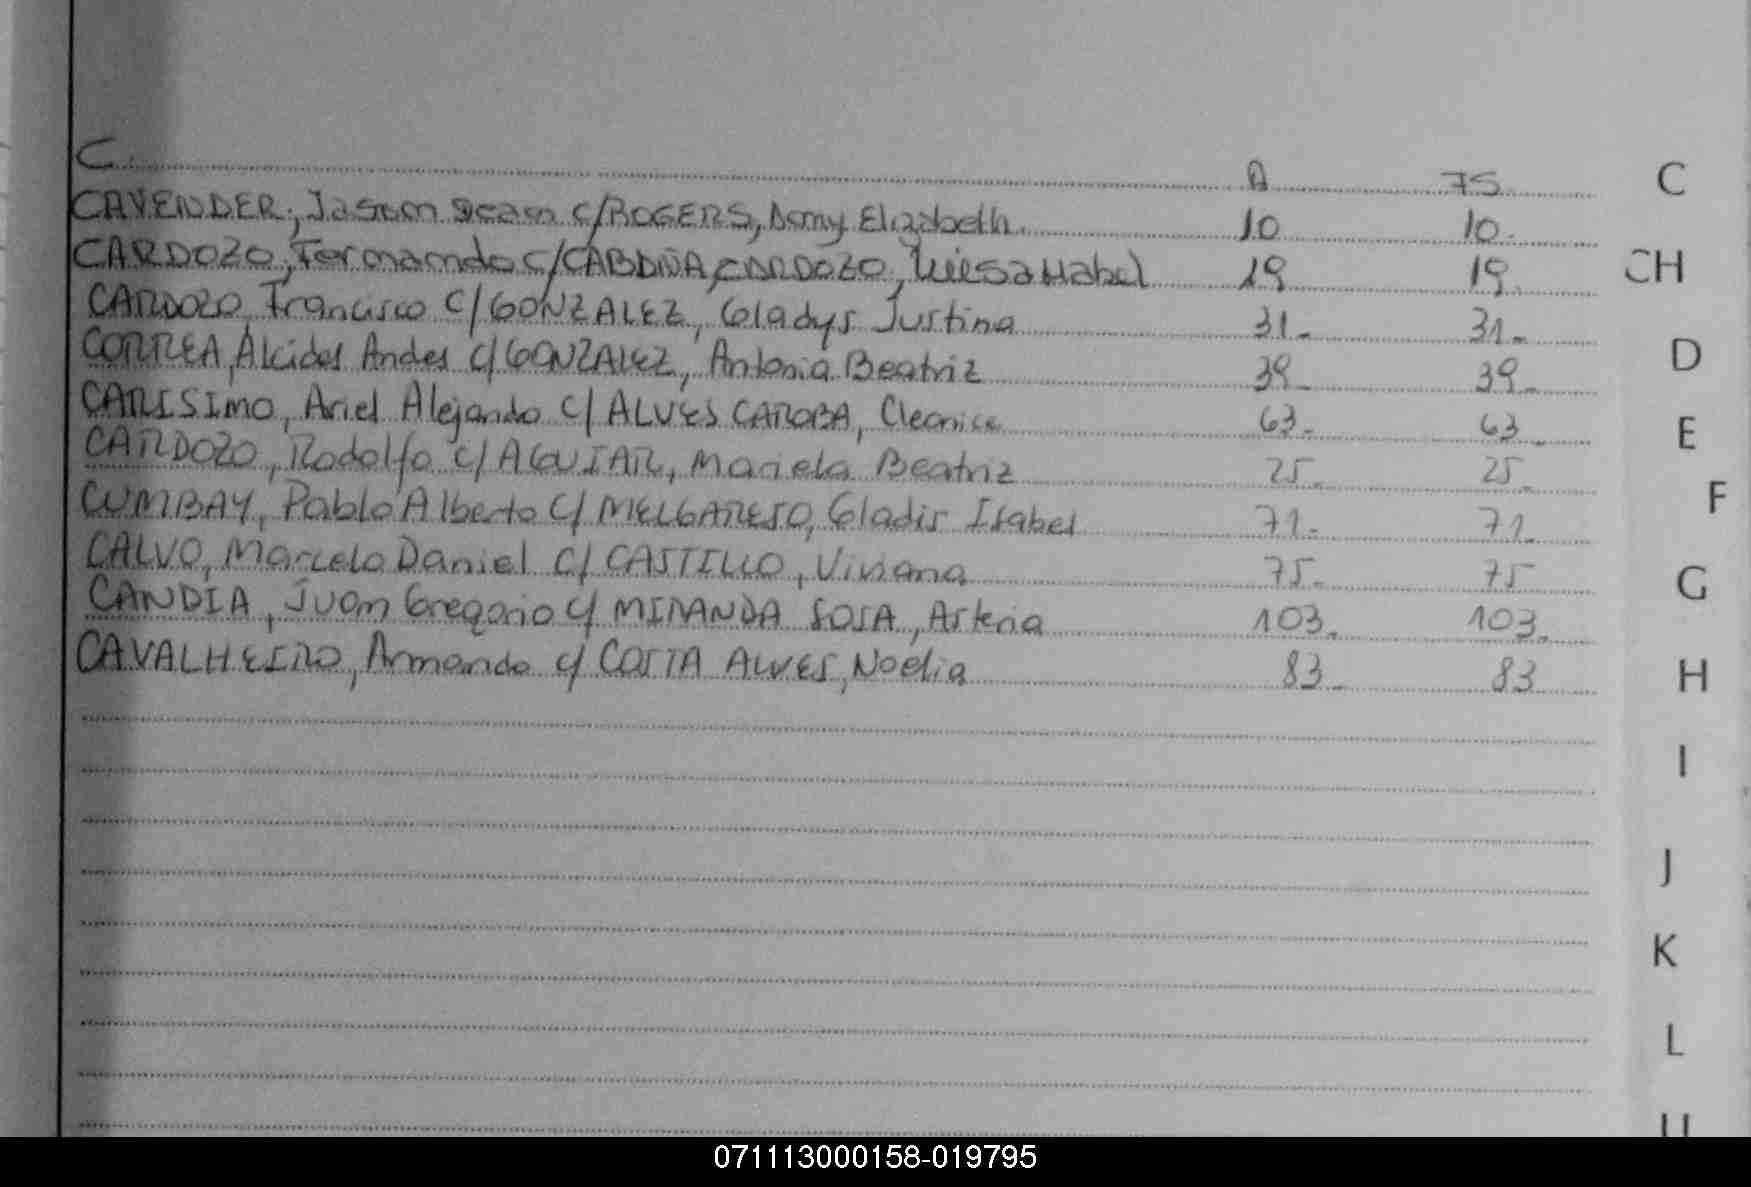 C. A 75 C
CAVENDER, Jason Dean c/ROGERS, Amy Elizabeth. 10 10.
CARDOZO, Fernando c/CABAÑA CARDOZO, Luisa Mabel 19 19. CH
CARDOZO, Francisco c/ GONZALEZ, Gladys Justina 31- 31-
CORREA, Alcides Andes c/ GONZALEZ, Antonia Beatriz 39- 39- D
CARISIMO, Ariel Alejando c/ ALVES CAROBA, Cleonice 63- 63- E
CARDOZO, Rodolfo c/ AGUIAR, Mariela Beatriz 25- 25-
CUMBAY, Pablo Alberto c/ MELGAREJO, Gladis Isabel 71- 71- F
CALVO, Marcelo Daniel c/ CASTILLO, Viviana 75- 75 G
CANDIA, Juan Gregorio c/ MIRANDA SOSA, Arteria 103- 103-
CAVALHEIRO, Armando c/ COSTA ALVES, Noelia 83- 83 H
I
J
K
L
071113000158-019795